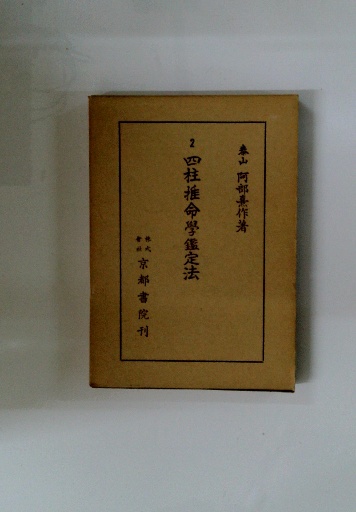 泰山 阿部熹作著
2 四柱推命學鑑定法
株式會社 京都書院刊